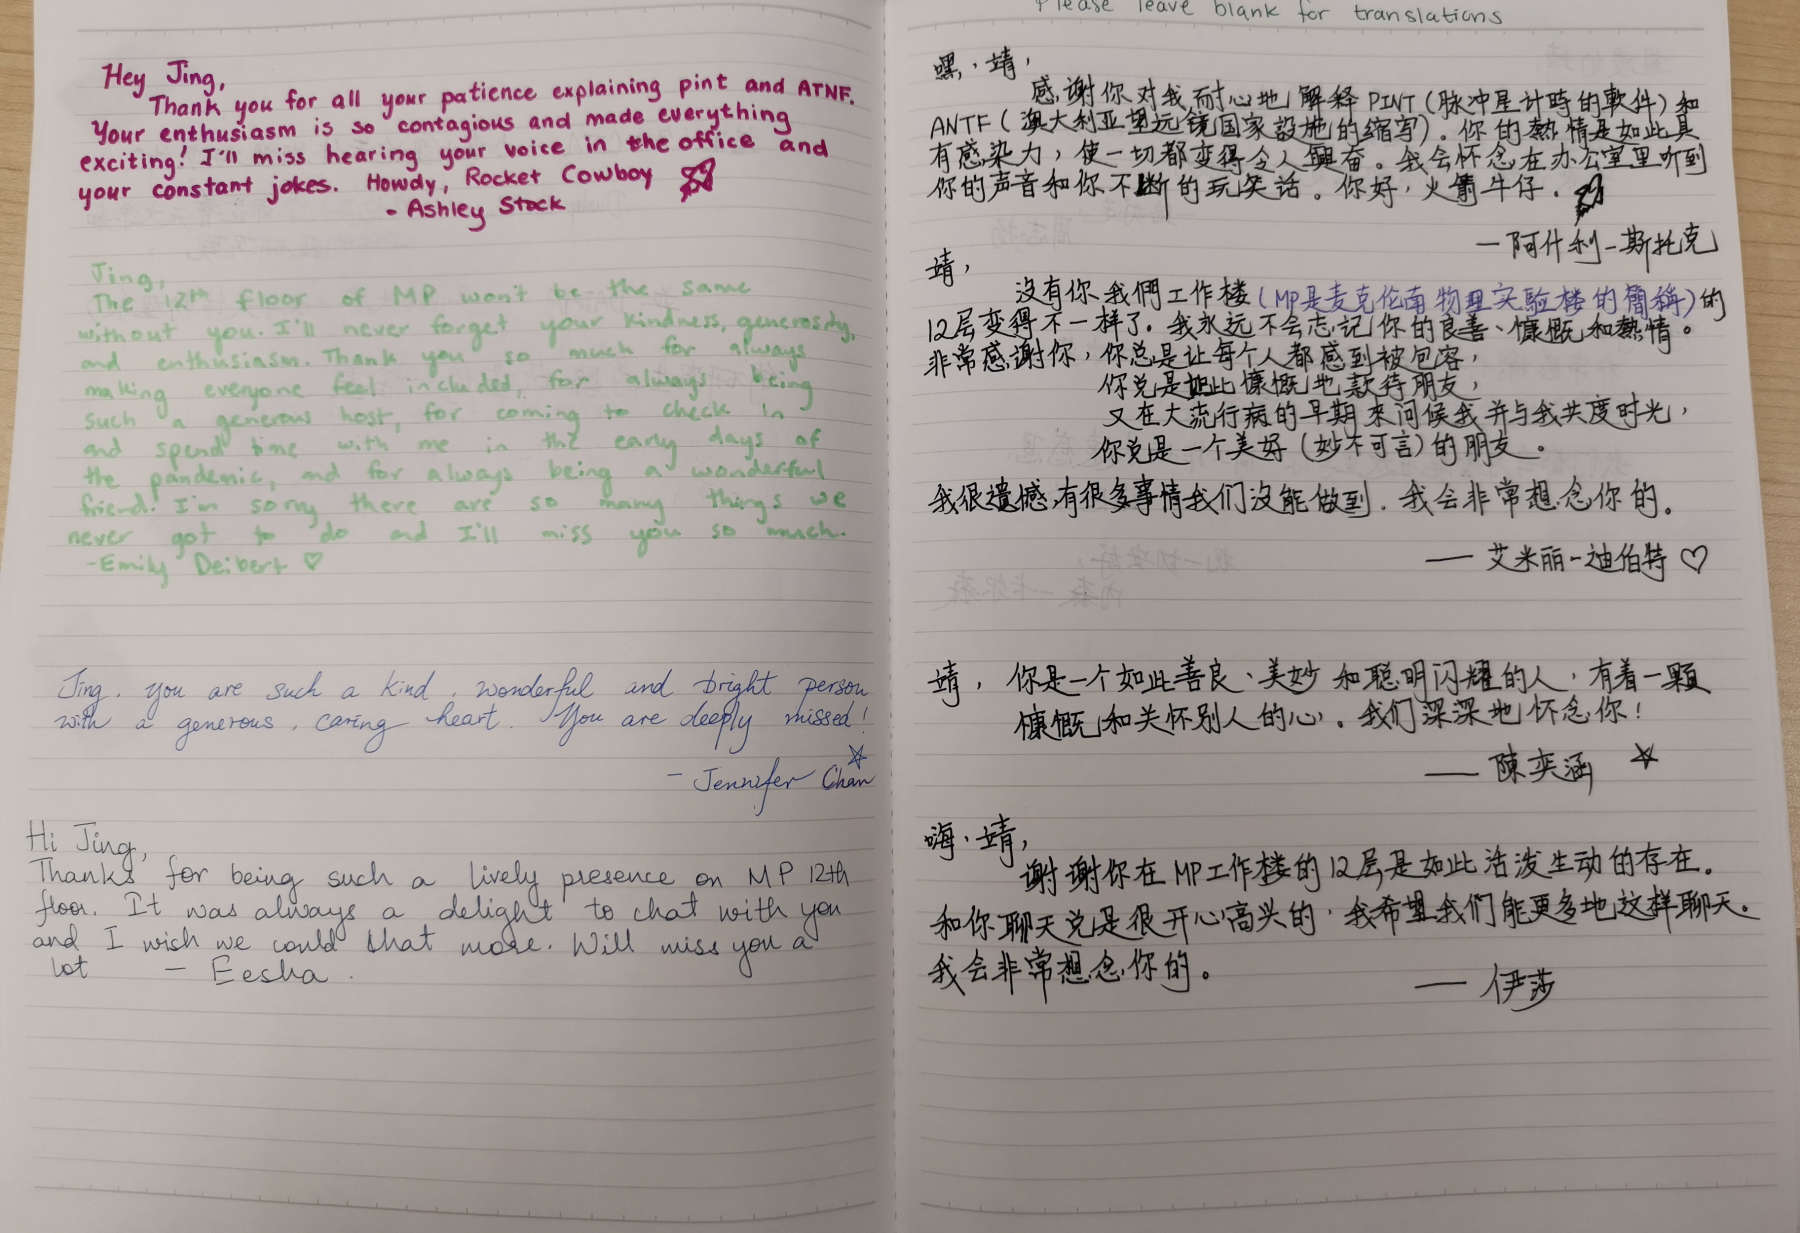 Hey Jing,
Thank you for all your patience explaining pint and ATNF.
Your enthusiasm is so contagious and made everything
exciting! I'll miss hearing your voice in the office and
your constant jokes. Howdy, Rocket Cowboy
- Ashley Stock
Jing,
The 12th floor of MP won't be the same
without you. I'll never forget your kindness, generosity,
and enthusiasm. Thank you so much for always
making everyone feel included, for always being
such a generous host, for coming to check in
and spend time with me in the early days of
the pandemic, and for always being a wonderful
friend! I'm sorry there are so many things we
never got to do and I'll miss you so much.
-Emily Deibert ♡
Jing, you are such a kind, wonderful and bright person
with a generous, caring heart. You are deeply missed!
- Jennifer Chan
Hi Jing,
Thanks for being such a lively presence on MP 12th
floor. It was always a delight to chat with you
and I wish we could chat more. Will miss you a
lot — Eesha.
Please leave blank for translations
嘿,靖,
感谢你对我耐心地解释PINT(脉冲星计時的軟件)和
ANTF(澳大利亚望远镜国家設施的缩写)。你的熱情是如此具
有感染力,使一切都变得令人興奋。我会怀念在办公室里听到
你的声音和你不断的玩笑话。你好,火箭牛仔.
—阿什利-斯托克
靖,
沒有你我們工作楼(MP是麦克伦南物理实验楼的簡稱)的
12层变得不一样了。我永远不会忘记你的良善、慷慨和熱情。
非常感谢你,你总是让每个人都感到被包容,
你总是如此慷慨地款待朋友,
又在大流行病的早期來问候我并与我共度时光,
你总是一个美好(妙不可言)的朋友。
我很遗憾,有很多事情我们没能做到.我会非常想念你的。
—— 艾米丽-迪伯特 ♡
靖,你是一个如此善良、美妙和聪明闪耀的人,有着一颗
慷慨和关怀别人的心。我们深深地怀念你!
—— 陳奕涵
嗨,靖,
谢谢你在MP工作楼的12层是如此活泼生动的存在.
和你聊天总是很开心高兴的,我希望我们能更多地这样聊天.
我会非常想念你的。
—— 伊莎